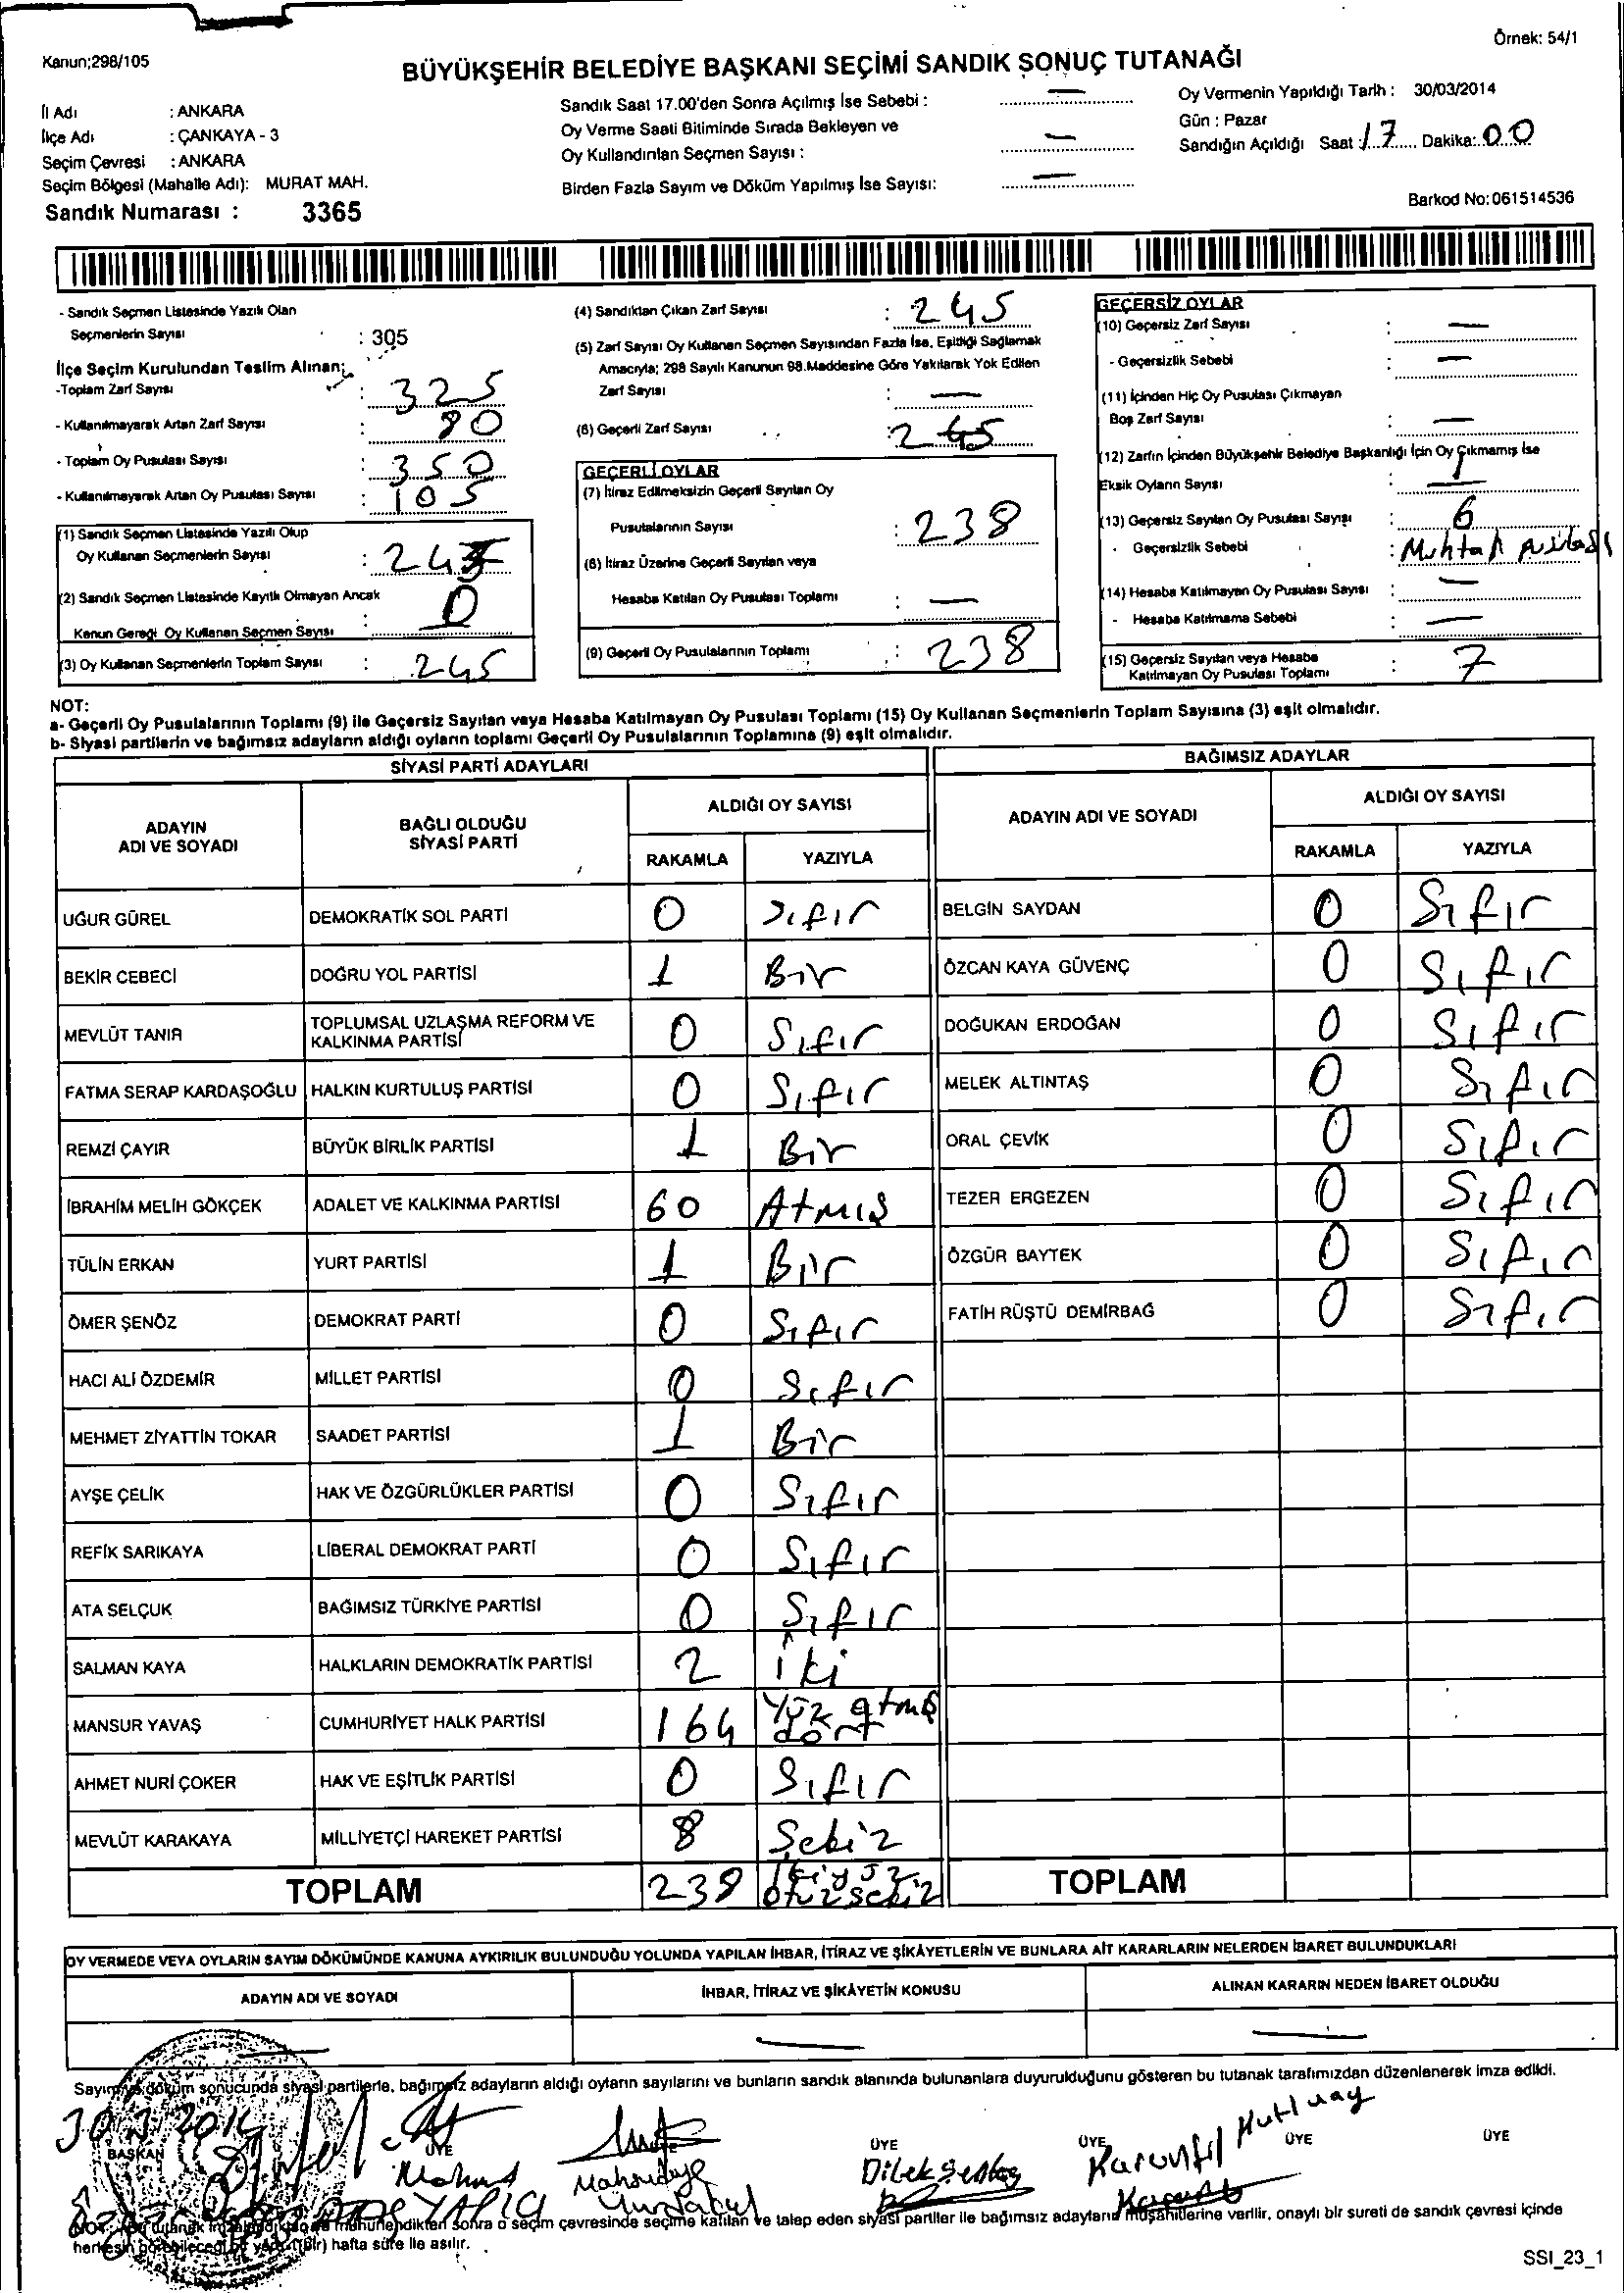 Örnek: 54/1
Kanun;298/105
BÜYÜKŞEHİR BELEDİYE BAŞKANI SEÇİMİ SANDIK SONUÇ TUTANAĞI
İl Adı : ANKARA
İlçe Adı : ÇANKAYA - 3
Seçim Çevresi : ANKARA
Seçim Bölgesi (Mahalle Adı): MURAT MAH.
Sandık Numarası : 3365
Sandık Saat 17.00'den Sonra Açılmış İse Sebebi : —
Oy Verme Saati Bitiminde Sırada Bekleyen ve
Oy Kullandırılan Seçmen Sayısı : —
Birden Fazla Sayım ve Döküm Yapılmış İse Sayısı: —
Oy Vermenin Yapıldığı Tarih : 30/03/2014
Gün : Pazar
Sandığın Açıldığı Saat : 17 Dakika: 00
Barkod No: 061514536
- Sandık Seçmen Listesinde Yazılı Olan
Seçmenlerin Sayısı : 305
İlçe Seçim Kurulundan Teslim Alınan;
-Toplam Zarf Sayısı : 325
- Kullanılmayarak Artan Zarf Sayısı : 80
- Toplam Oy Pusulası Sayısı : 350
- Kullanılmayarak Artan Oy Pusulası Sayısı : 105
(1) Sandık Seçmen Listesinde Yazılı Olup
Oy Kullanan Seçmenlerin Sayısı : 245
(2) Sandık Seçmen Listesinde Kayıtlı Olmayan Ancak
Kanun Gereği Oy Kullanan Seçmen Sayısı : 0
(3) Oy Kullanan Seçmenlerin Toplam Sayısı : 245
(4) Sandıktan Çıkan Zarf Sayısı : 245
(5) Zarf Sayısı Oy Kullanan Seçmen Sayısından Fazla İse, Eşitliği Sağlamak
Amacıyla; 298 Sayılı Kanunun 98.Maddesine Göre Yakılarak Yok Edilen
Zarf Sayısı : —
(6) Geçerli Zarf Sayısı : 245
GEÇERLİ OYLAR
(7) İtiraz Edilmeksizin Geçerli Sayılan Oy
Pusulalarının Sayısı : 238
(8) İtiraz Üzerine Geçerli Sayılan veya
Hesaba Katılan Oy Pusulası Toplamı : —
(9) Geçerli Oy Pusulalarının Toplamı : 238
GEÇERSİZ OYLAR
(10) Geçersiz Zarf Sayısı : —
- Geçersizlik Sebebi : —
(11) İçinden Hiç Oy Pusulası Çıkmayan
Boş Zarf Sayısı : —
(12) Zarfın İçinden Büyükşehir Belediye Başkanlığı İçin Oy Çıkmamış İse
Eksik Oyların Sayısı : 1
(13) Geçersiz Sayılan Oy Pusulası Sayısı : 6
- Geçersizlik Sebebi : Muhtar pusulası
(14) Hesaba Katılmayan Oy Pusulası Sayısı : —
- Hesaba Katılmama Sebebi : —
(15) Geçersiz Sayılan veya Hesaba
Katılmayan Oy Pusulası Toplamı : 7
NOT:
a- Geçerli Oy Pusulalarının Toplamı (9) ile Geçersiz Sayılan veya Hesaba Katılmayan Oy Pusulası Toplamı (15) Oy Kullanan Seçmenlerin Toplam Sayısına (3) eşit olmalıdır.
b- Siyasi partilerin ve bağımsız adayların aldığı oyların toplamı Geçerli Oy Pusulalarının Toplamına (9) eşit olmalıdır.
SİYASİ PARTİ ADAYLARI
ADAYIN ADI VE SOYADI BAĞLI OLDUĞU SİYASİ PARTİ ALDIĞI OY SAYISI
RAKAMLA YAZIYLA
UĞUR GÜREL DEMOKRATİK SOL PARTİ 0 Sıfır
BEKİR CEBECİ DOĞRU YOL PARTİSİ 1 Bir
MEVLÜT TANIR TOPLUMSAL UZLAŞMA REFORM VE KALKINMA PARTİSİ 0 Sıfır
FATMA SERAP KARDAŞOĞLU HALKIN KURTULUŞ PARTİSİ 0 Sıfır
REMZİ ÇAYIR BÜYÜK BİRLİK PARTİSİ 1 Bir
İBRAHİM MELİH GÖKÇEK ADALET VE KALKINMA PARTİSİ 60 Atmış
TÜLİN ERKAN YURT PARTİSİ 1 Bir
ÖMER ŞENÖZ DEMOKRAT PARTİ 0 Sıfır
HACI ALİ ÖZDEMİR MİLLET PARTİSİ 0 Sıfır
MEHMET ZİYATTİN TOKAR SAADET PARTİSİ 1 Bir
AYŞE ÇELİK HAK VE ÖZGÜRLÜKLER PARTİSİ 0 Sıfır
REFİK SARIKAYA LİBERAL DEMOKRAT PARTİ 0 Sıfır
ATA SELÇUK BAĞIMSIZ TÜRKİYE PARTİSİ 0 Sıfır
SALMAN KAYA HALKLARIN DEMOKRATİK PARTİSİ 2 iki
MANSUR YAVAŞ CUMHURİYET HALK PARTİSİ 164 Yüz atmış dört
AHMET NURİ ÇOKER HAK VE EŞİTLİK PARTİSİ 0 Sıfır
MEVLÜT KARAKAYA MİLLİYETÇİ HAREKET PARTİSİ 8 Sekiz
TOPLAM 238 ikiyüz otuzsekiz
BAĞIMSIZ ADAYLAR
ADAYIN ADI VE SOYADI ALDIĞI OY SAYISI
RAKAMLA YAZIYLA
BELGİN SAYDAN 0 Sıfır
ÖZCAN KAYA GÜVENÇ 0 Sıfır
DOĞUKAN ERDOĞAN 0 Sıfır
MELEK ALTINTAŞ 0 Sıfır
ORAL ÇEVİK 0 Sıfır
TEZER ERGEZEN 0 Sıfır
ÖZGÜR BAYTEK 0 Sıfır
FATİH RÜŞTÜ DEMİRBAĞ 0 Sıfır
TOPLAM
OY VERMEDE VEYA OYLARIN SAYIM DÖKÜMÜNDE KANUNA AYKIRILIK BULUNDUĞU YOLUNDA YAPILAN İHBAR, İTİRAZ VE ŞİKÂYETLERİN VE BUNLARA AİT KARARLARIN NELERDEN İBARET BULUNDUKLARI
ADAYIN ADI VE SOYADI İHBAR, İTİRAZ VE ŞİKÂYETİN KONUSU ALINAN KARARIN NEDEN İBARET OLDUĞU
— — —
Sayım ve döküm sonucunda siyasi partilerle, bağımsız adayların aldığı oyların sayılarını ve bunların sandık alanında bulunanlara duyurulduğunu gösteren bu tutanak tarafımızdan düzenlenerek imza edildi.
30.3.2014
BAŞKAN ÜYE ÜYE ÜYE ÜYE ÜYE
YAPICI Dilek Karanfil Kutluay
NOT: Bu tutanak imzalandıktan ve mühürlendikten sonra o seçim çevresinde seçime katılan ve talep eden siyasi partiler ile bağımsız adayların müşahitlerine verilir, onaylı bir sureti de sandık çevresi içinde
herkesin görebileceği bir yere 1 (Bir) hafta süre ile asılır.
SSI_23_1